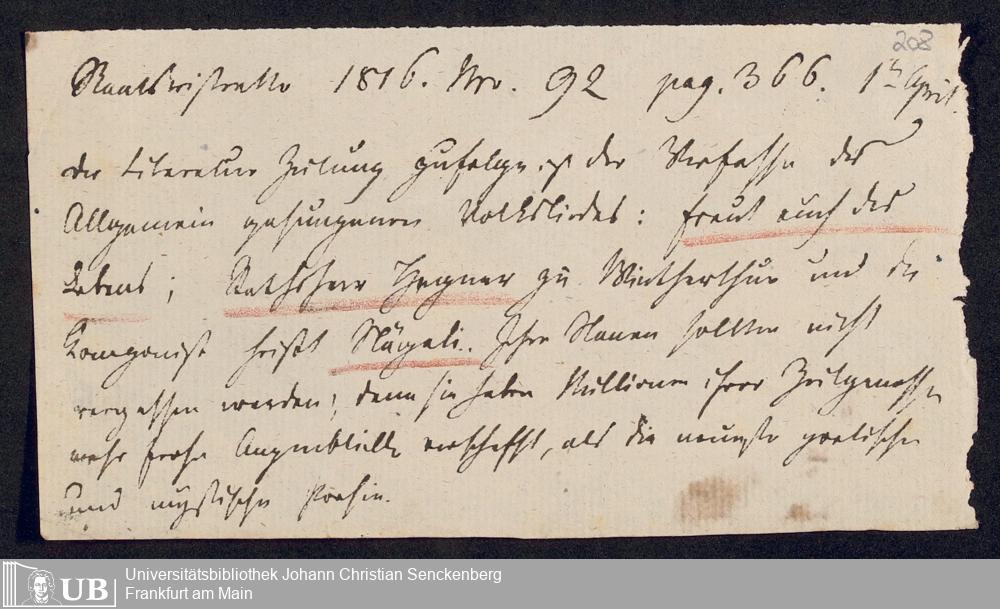 208
Staatsristretto 1816. Nro. 92 pag. 366. 1ten April.
der Literatur Zeitung zufolge ist der Verfasser des
Allgemein gesungenen Volksliedes: freut euch des
Lebens; Rathsherr Hegner zu Winterthur und der
Komponist heißt Nägeli. Ihre Namen sollten nicht
vergessen werden; denn sie haben Millionen ihrer Zeitgenossen
mehr frohe Augenblicke verschafft, als die neueste
und mystische Poesie.
UB Universitätsbibliothek Johann Christian Senckenberg
Frankfurt am Main